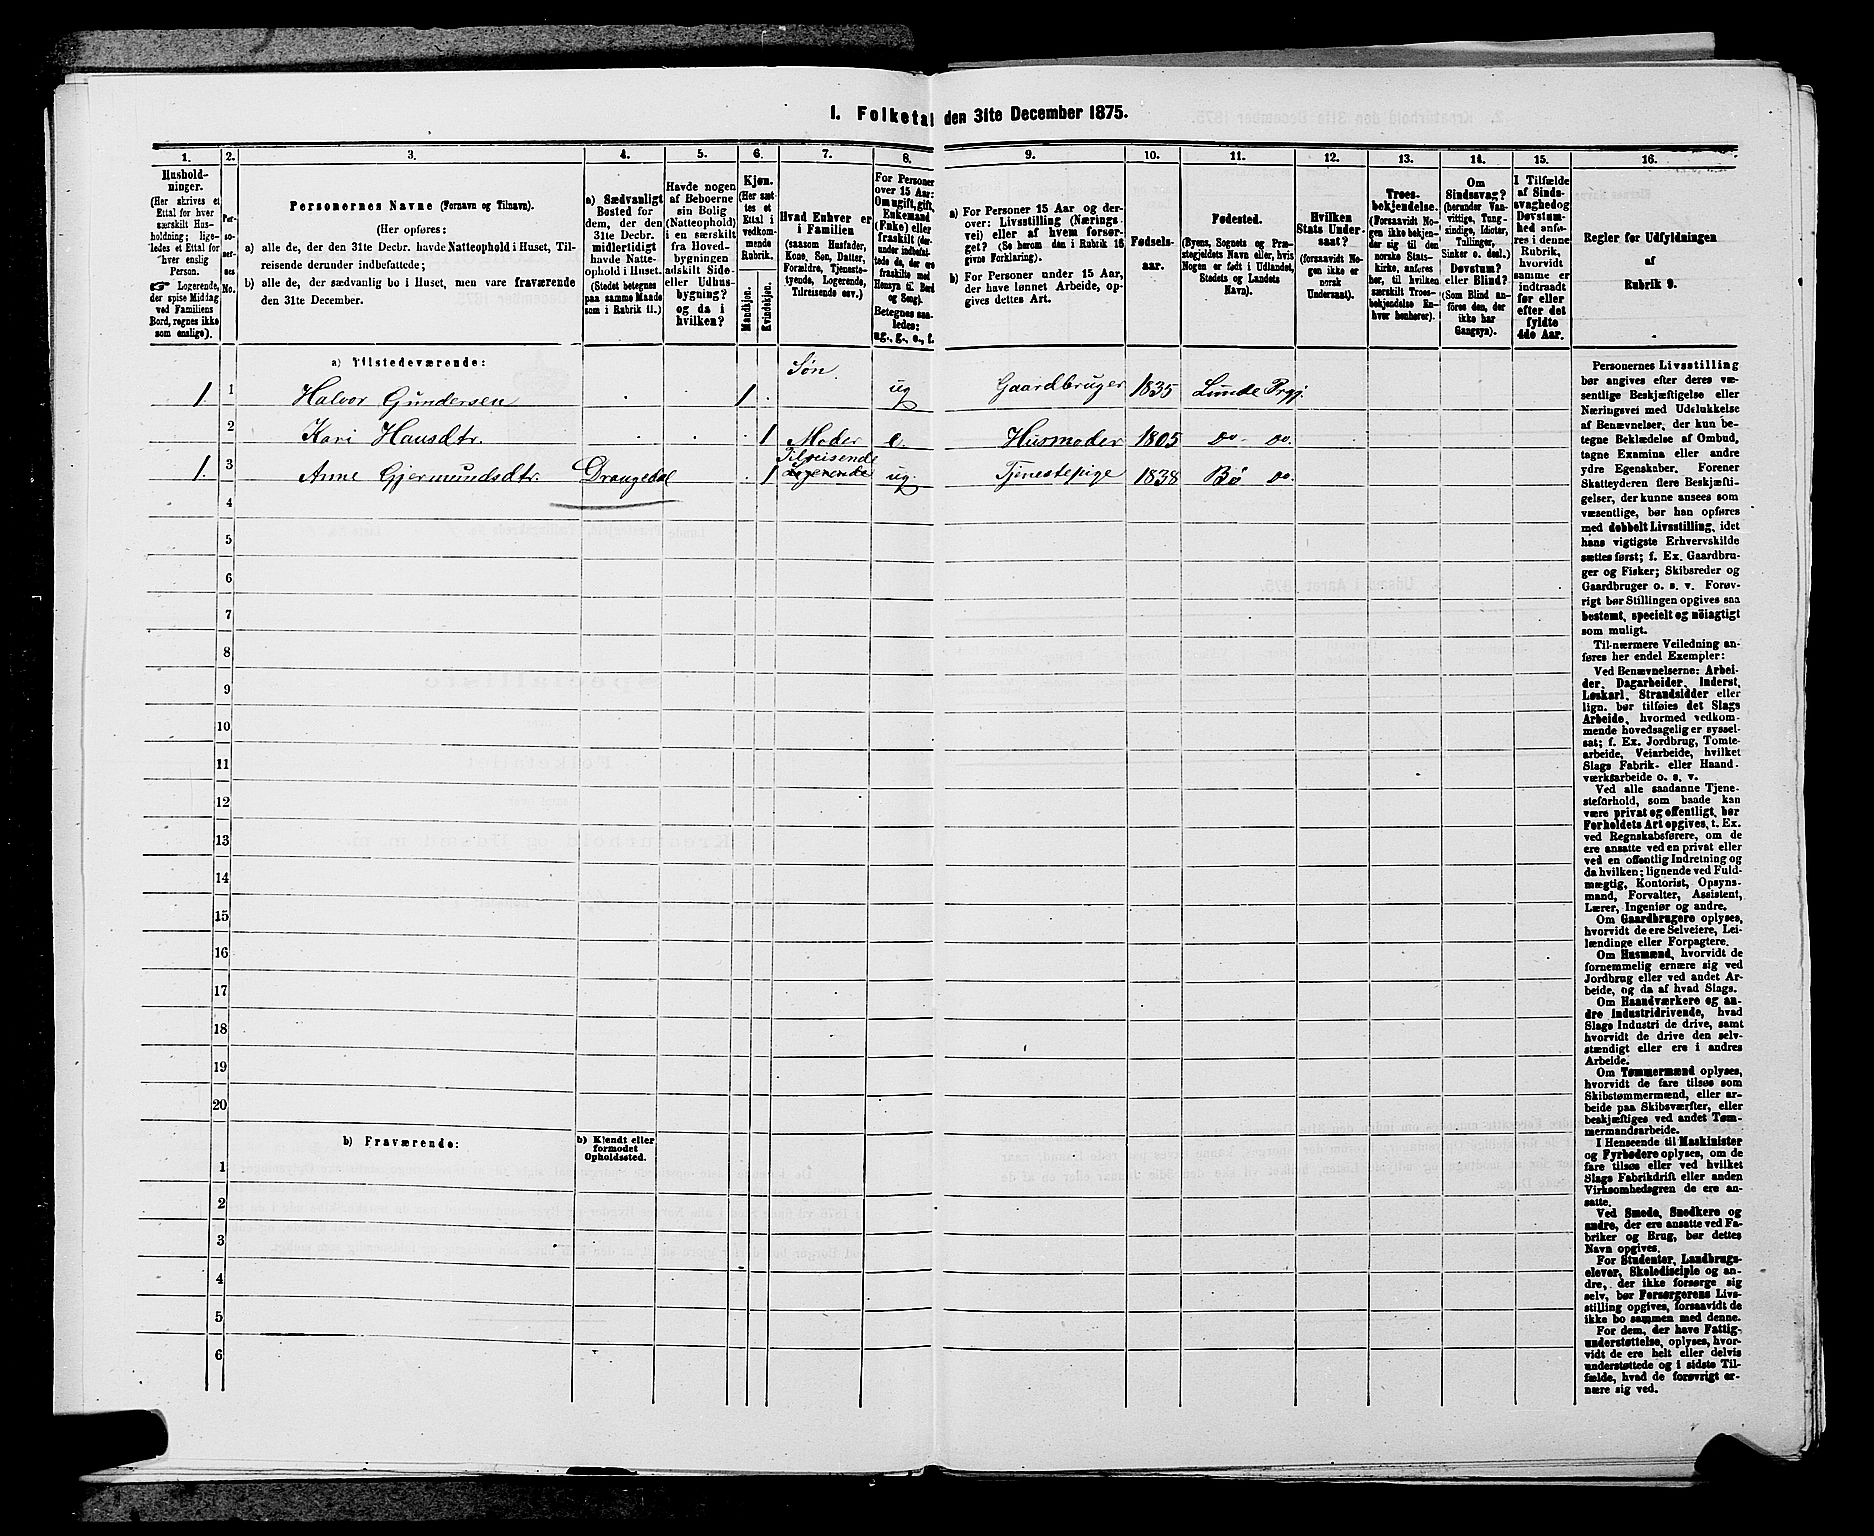 1. Folketal den 31te December 1875.
1.
Hushold-
ninger.
(Her skrives et
Ettal for hver
særskilt Hus-
holdning; lige-
ledes et Ettal for
hver enslig
Person.
☞ Logerende,
der spise Middag
ved Familiens
Bord, regnes ikke
som enslige).
2.
Per-
so-
ner-
nes
No.
3.
Personernes Navne (Fornavn og Tilnavn).
(Her opføres:
a) alle de, der den 31te Decbr. havde Natteophold i Huset, Til-
reisende derunder indbefattede;
b) alle de, der sædvanlig bo i Huset, men vare fraværende
den 31te December.
4.
a) Sædvanligt
Bosted for
dem, der den
31te Decbr.
midlertidigt
havde Natte-
ophold i Huset.
(Stedet betegnes
paa samme Maade
som i Rubrik 11.)
5.
Havde nogen
af Beboerne
sin Bolig
(Natteophold)
i en særskilt
fra Hoved-
bygningen
adskilt Side-
eller Udhus-
bygning?
og da i
hvilken?
6.
Kjøn.
(Her sæt-
tes et
Ettal i
vedkom-
mende
Rubrik.
Mandkjøn.
Kvindekjøn.
7.
Hvad Enhver er
i Familien
(saasom Husfader,
Kone, Søn, Datter,
Forældre, Tjeneste-
tyende, Logerende,
Tilreisende osv.)
8.
For Personer
over 15 Aar:
Om ugift, gift,
Enkemand
(Enke) eller
fraskilt (der-
under indbefat-
tede de, der ere
fraskilte med
Hensyn til Bord
og Seng).
Betegnes saa-
ledes:
ug., g., e., f.
9.
a) For Personer 15 Aar og der-
over: Livsstilling (Nærings-
vei) eller af hvem forsør-
get? (Se herom den i Rubrik 16
givne Forklaring).
b) For Personer under 15 Aar,
der have lønnet Arbeide, op-
gives dettes Art.
10.
Fødsels-
aar.
11.
Fødested.
(Byens, Sognets og Præ-
stegjeldets Navn eller, hvis
Nogen er født i Udlandet,
Stedets og Landets
Navn).
12.
Hvilken
Stats Under-
saat?
(forsaavidt No-
gen ikke er
norsk
Undersaat).
13.
Troes-
bekjendelse.
(Forsaavidt No-
gen ikke bekjen-
der sig til den
norske Stats-
kirke, anføres
her, til hvilken
særskilt Troes-
bekjendelse En-
hver henhører).
14.
Om
Sindssvag?
(herunder Van-
vittige, Tung-
sindige, Idioter,
Tullinger,
Sinker o. desl.)
Døvstum?
eller Blind?
(Som Blind an-
føres den, der
ikke har
Gangsyn).
15.
I Tilfælde
af Sinds-
svaghed og
Døvstum-
hed anfø-
res i denne
Rubrik,
hvorvidt
samme er
indtraadt
før eller
efter det
fyldte
4de Aar.
16.
Regler for Udfyldningen
af
Rubrik 9.
a) Tilstedeværende:
1 1 Halvor Gundersen 1 Søn ug Gaardbruger 1835 Lunde Prgj.
2 Kari Hansdtr. 1 Moder e. Husmoder 1805 do do.
1. 3 Anne Gjermundsdtr. Drangedal 1 Tilreisende Logerende ug. Tjenestepige 1838 Bø do.
4
5
6
7
8
9
10
11
12
13
14
15
16
17
18
19
20
b) Fraværende:
b) Kjendt eller
formodet
Opholdssted.
1
2
3
4
5
6
Personernes Livsstilling
bør angives efter deres væ-
sentlige Beskjæftigelse eller
Næringsvei med Udelukkelse
af Benævnelser, der kun be-
tegne Beklædelse af Ombud,
tagne Examina eller andre
ydre Egenskaber. Forener
Skatteyderen flere Beskjæfti-
gelser, der kunne ansees som
væsentlige, bør han opføres
med dobbelt Livsstilling, idet
hans vigtigste Erhvervskilde
sættes først; f. Ex. Gaardbru-
ger og Fisker; Skibsreder og
Gaardbruger o. s. v. Forøv-
rigt bør Stillingen opgives saa
bestemt, specielt og nöiagtigt
som muligt.
Til nærmere Veiledning an-
føres her endel Exempler:
Ved Benævnelserne: Arbei-
der, Dagarbeider, Inderst,
Løskarl, Strandsidder eller
lign. bør tilføies det Slags
Arbeide, hvormed vedkom-
mende hovedsagelig er syssel-
sat; f. Ex. Jordbrug, Tomte-
arbeide, Veiarbeide, hvilket
Slags Fabrik- eller Haand-
værksarbeide o. s. v.
Ved alle saadanne Tjene-
steforhold, som baade kan
være privat og offentligt, bør
Forholdets Art opgives, t. Ex.
ved Regnskabsførere, om de
ere ansatte ved en privat eller
ved en offentlig Indretning og
da hvilken; lignende ved Fuld-
mægtig, Kontorist, Opsyns-
mand, Forvalter, Assistent,
Lærer, Ingeniør og andre.
Om Gaardbrugere oplyses,
hvorvidt de ere Selveiere, Lei-
lændinge eller Forpagtere.
Om Husmænd, hvorvidt de
fornemmelig ernære sig ved
Jordbrug eller ved andet Ar-
beide, og da af hvad Slags.
Om Haandværkere og an-
dre Industridrivende, hvad
Slags Industri de drive, samt
hvorvidt de drive den selv-
stændigt eller ere i andres
Arbeide.
Om Tømmermænd oplyses,
hvorvidt de fare tilsøs som
Skibstømmermænd, eller ar-
beide paa Skibsværfter, eller
beskjæftiges ved andet Tøm-
mermandsarbeide.
I Henseende til Maskinister
og Fyrbødere oplyses, om de
fare tilsøs eller ved hvilket
Slags Fabrikdrift eller anden
Virksomhedsgren de ere an-
satte.
Ved Smede, Snedkere og
andre, der ere ansatte ved Fa-
briker og Brug, bør dettes
Navn opgives.
For Studenter, Landbrugs-
elever, Skoledisciple og an-
dre, der ikke forsørge sig
selv, bør Forsørgerens Livs-
stilling opgives, forsaavidt de
ikke bo sammen med denne.
For dem, der have Fattig-
understøttelse, oplyses, hvor-
vidt de ere helt eller delvis
understøttede og i sidste Til-
fælde, hvad de forøvrigt er-
nære sig ved.